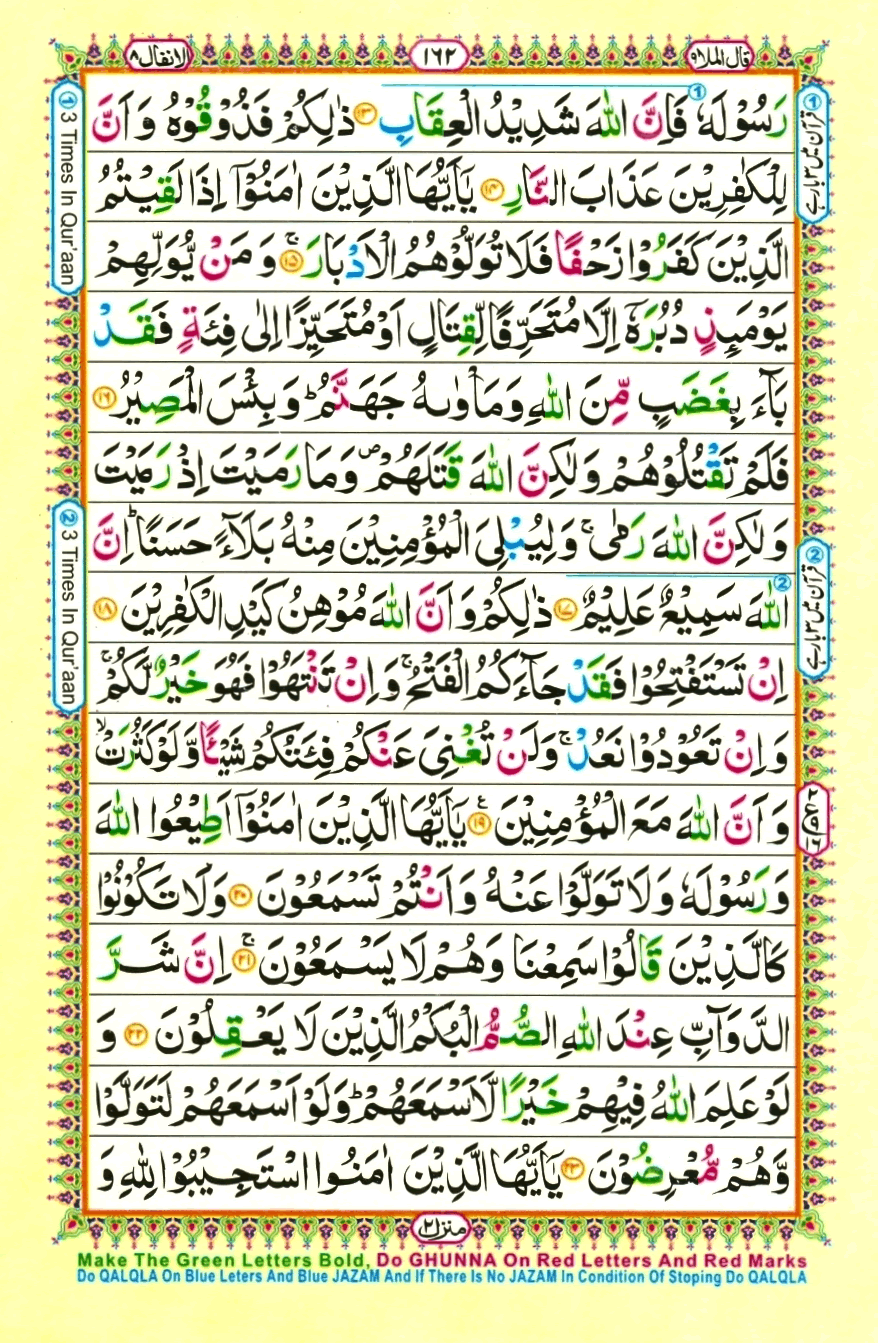 الانفال ٨
١٦٢
قال الملا ٩
رَسُوْلَهٗ فَاِنَّ اللّٰهَ شَدِيْدُ الْعِقَابِ ﴿۱۳﴾ ذٰلِكُمْ فَذُوْقُوْهُ وَ اَنَّ
لِلْكٰفِرِيْنَ عَذَابَ النَّارِ ﴿۱۴﴾ يٰۤاَيُّهَا الَّذِيْنَ اٰمَنُوْۤا اِذَا لَقِيْتُمُ
الَّذِيْنَ كَفَرُوْا زَحْفًا فَلَا تُوَلُّوْهُمُ الْاَدْبَارَ ۚ﴿۱۵﴾ وَ مَنْ يُّوَلِّهِمْ
يَوْمَىِٕذٍ دُبُرَهٗۤ اِلَّا مُتَحَرِّفًا لِّقِتَالٍ اَوْ مُتَحَيِّزًا اِلٰى فِئَةٍ فَقَدْ
بَآءَ بِغَضَبٍ مِّنَ اللّٰهِ وَمَاْوٰىهُ جَهَنَّمُ ؕ وَ بِئْسَ الْمَصِيْرُ ﴿۱۶﴾
فَلَمْ تَقْتُلُوْهُمْ وَلٰكِنَّ اللّٰهَ قَتَلَهُمْ ۪ وَمَا رَمَيْتَ اِذْ رَمَيْتَ
وَلٰكِنَّ اللّٰهَ رَمٰى ۚ وَلِيُبْلِىَ الْمُؤْمِنِيْنَ مِنْهُ بَلَآءً حَسَنًا ؕ اِنَّ
اللّٰهَ سَمِيْعٌ عَلِيْمٌ ﴿۱۷﴾ ذٰلِكُمْ وَ اَنَّ اللّٰهَ مُوْهِنُ كَيْدِ الْكٰفِرِيْنَ ﴿۱۸﴾
اِنْ تَسْتَفْتِحُوْا فَقَدْ جَآءَكُمُ الْفَتْحُ ۚ وَ اِنْ تَنْتَهُوْا فَهُوَ خَيْرٌ لَّكُمْ ۚ
وَ اِنْ تَعُوْدُوْا نَعُدْ ۚ وَلَنْ تُغْنِىَ عَنْكُمْ فِئَتُكُمْ شَيْـًٔا وَّ لَوْ كَثُرَتْ ۙ
وَ اَنَّ اللّٰهَ مَعَ الْمُؤْمِنِيْنَ ﴿۱۹﴾ يٰۤاَيُّهَا الَّذِيْنَ اٰمَنُوْۤا اَطِيْعُوا اللّٰهَ
وَ رَسُوْلَهٗ وَ لَا تَوَلَّوْا عَنْهُ وَ اَنْتُمْ تَسْمَعُوْنَ ﴿۲۰﴾ وَلَا تَكُوْنُوْا
كَالَّذِيْنَ قَالُوْا سَمِعْنَا وَهُمْ لَا يَسْمَعُوْنَ ۚ﴿۲۱﴾ اِنَّ شَرَّ
الدَّوَآبِّ عِنْدَ اللّٰهِ الصُّمُّ الْبُكْمُ الَّذِيْنَ لَا يَعْقِلُوْنَ ﴿۲۲﴾ وَ
لَوْ عَلِمَ اللّٰهُ فِيْهِمْ خَيْرًا لَّاَسْمَعَهُمْ ؕ وَلَوْ اَسْمَعَهُمْ لَتَوَلَّوْا
وَّهُمْ مُّعْرِضُوْنَ ﴿۲۳﴾ يٰۤاَيُّهَا الَّذِيْنَ اٰمَنُوا اسْتَجِيْبُوْا لِلّٰهِ وَ
① قرآن میں ۳ بار ہے
② قرآن میں ۳ بار ہے
① 3 Times In Qur'aan
② 3 Times In Qur'aan
منزل ٢
Make The Green Letters Bold, Do GHUNNA On Red Letters And Red Marks
Do QALQLA On Blue Leters And Blue JAZAM And If There Is No JAZAM In Condition Of Stoping Do QALQLA